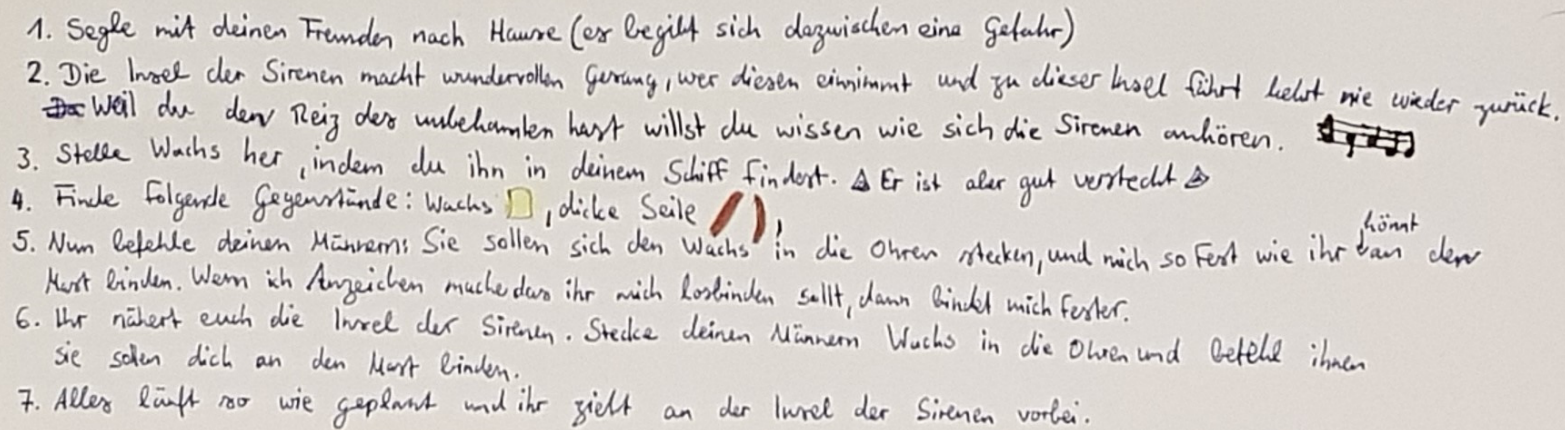 1. Segle mit deinen Freunden nach Hause (es begibt sich dazwischen eine Gefahr)
2. Die Insel der Sirenen macht wundervollen Gesang, wer diesen einnimmt und zu dieser Insel fährt kehrt nie wieder zurück.
Weil du den Reiz des unbekannten hast willst du wissen wie sich die Sirenen anhören.
3. Stelle Wachs her, indem du ihn in deinem Schiff findest. Er ist aber gut versteckt
4. Finde folgende Gegenstände: Wachs, dicke Seile,
5. Nun befehle deinen Männern: Sie sollen sich den Wachs in die Ohren stecken, und mich so Fest wie ihr könnt an den
Mast binden. Wenn ich Anzeichen mache das ihr mich losbinden sollt, dann bindet mich fester.
6. Ihr nähert euch die Insel der Sirenen. Stecke deinen Männern Wachs in die Ohren und befehl ihnen
sie sollen dich an den Mast binden.
7. Alles läuft so wie geplant und ihr zieht an der Insel der Sirenen vorbei.